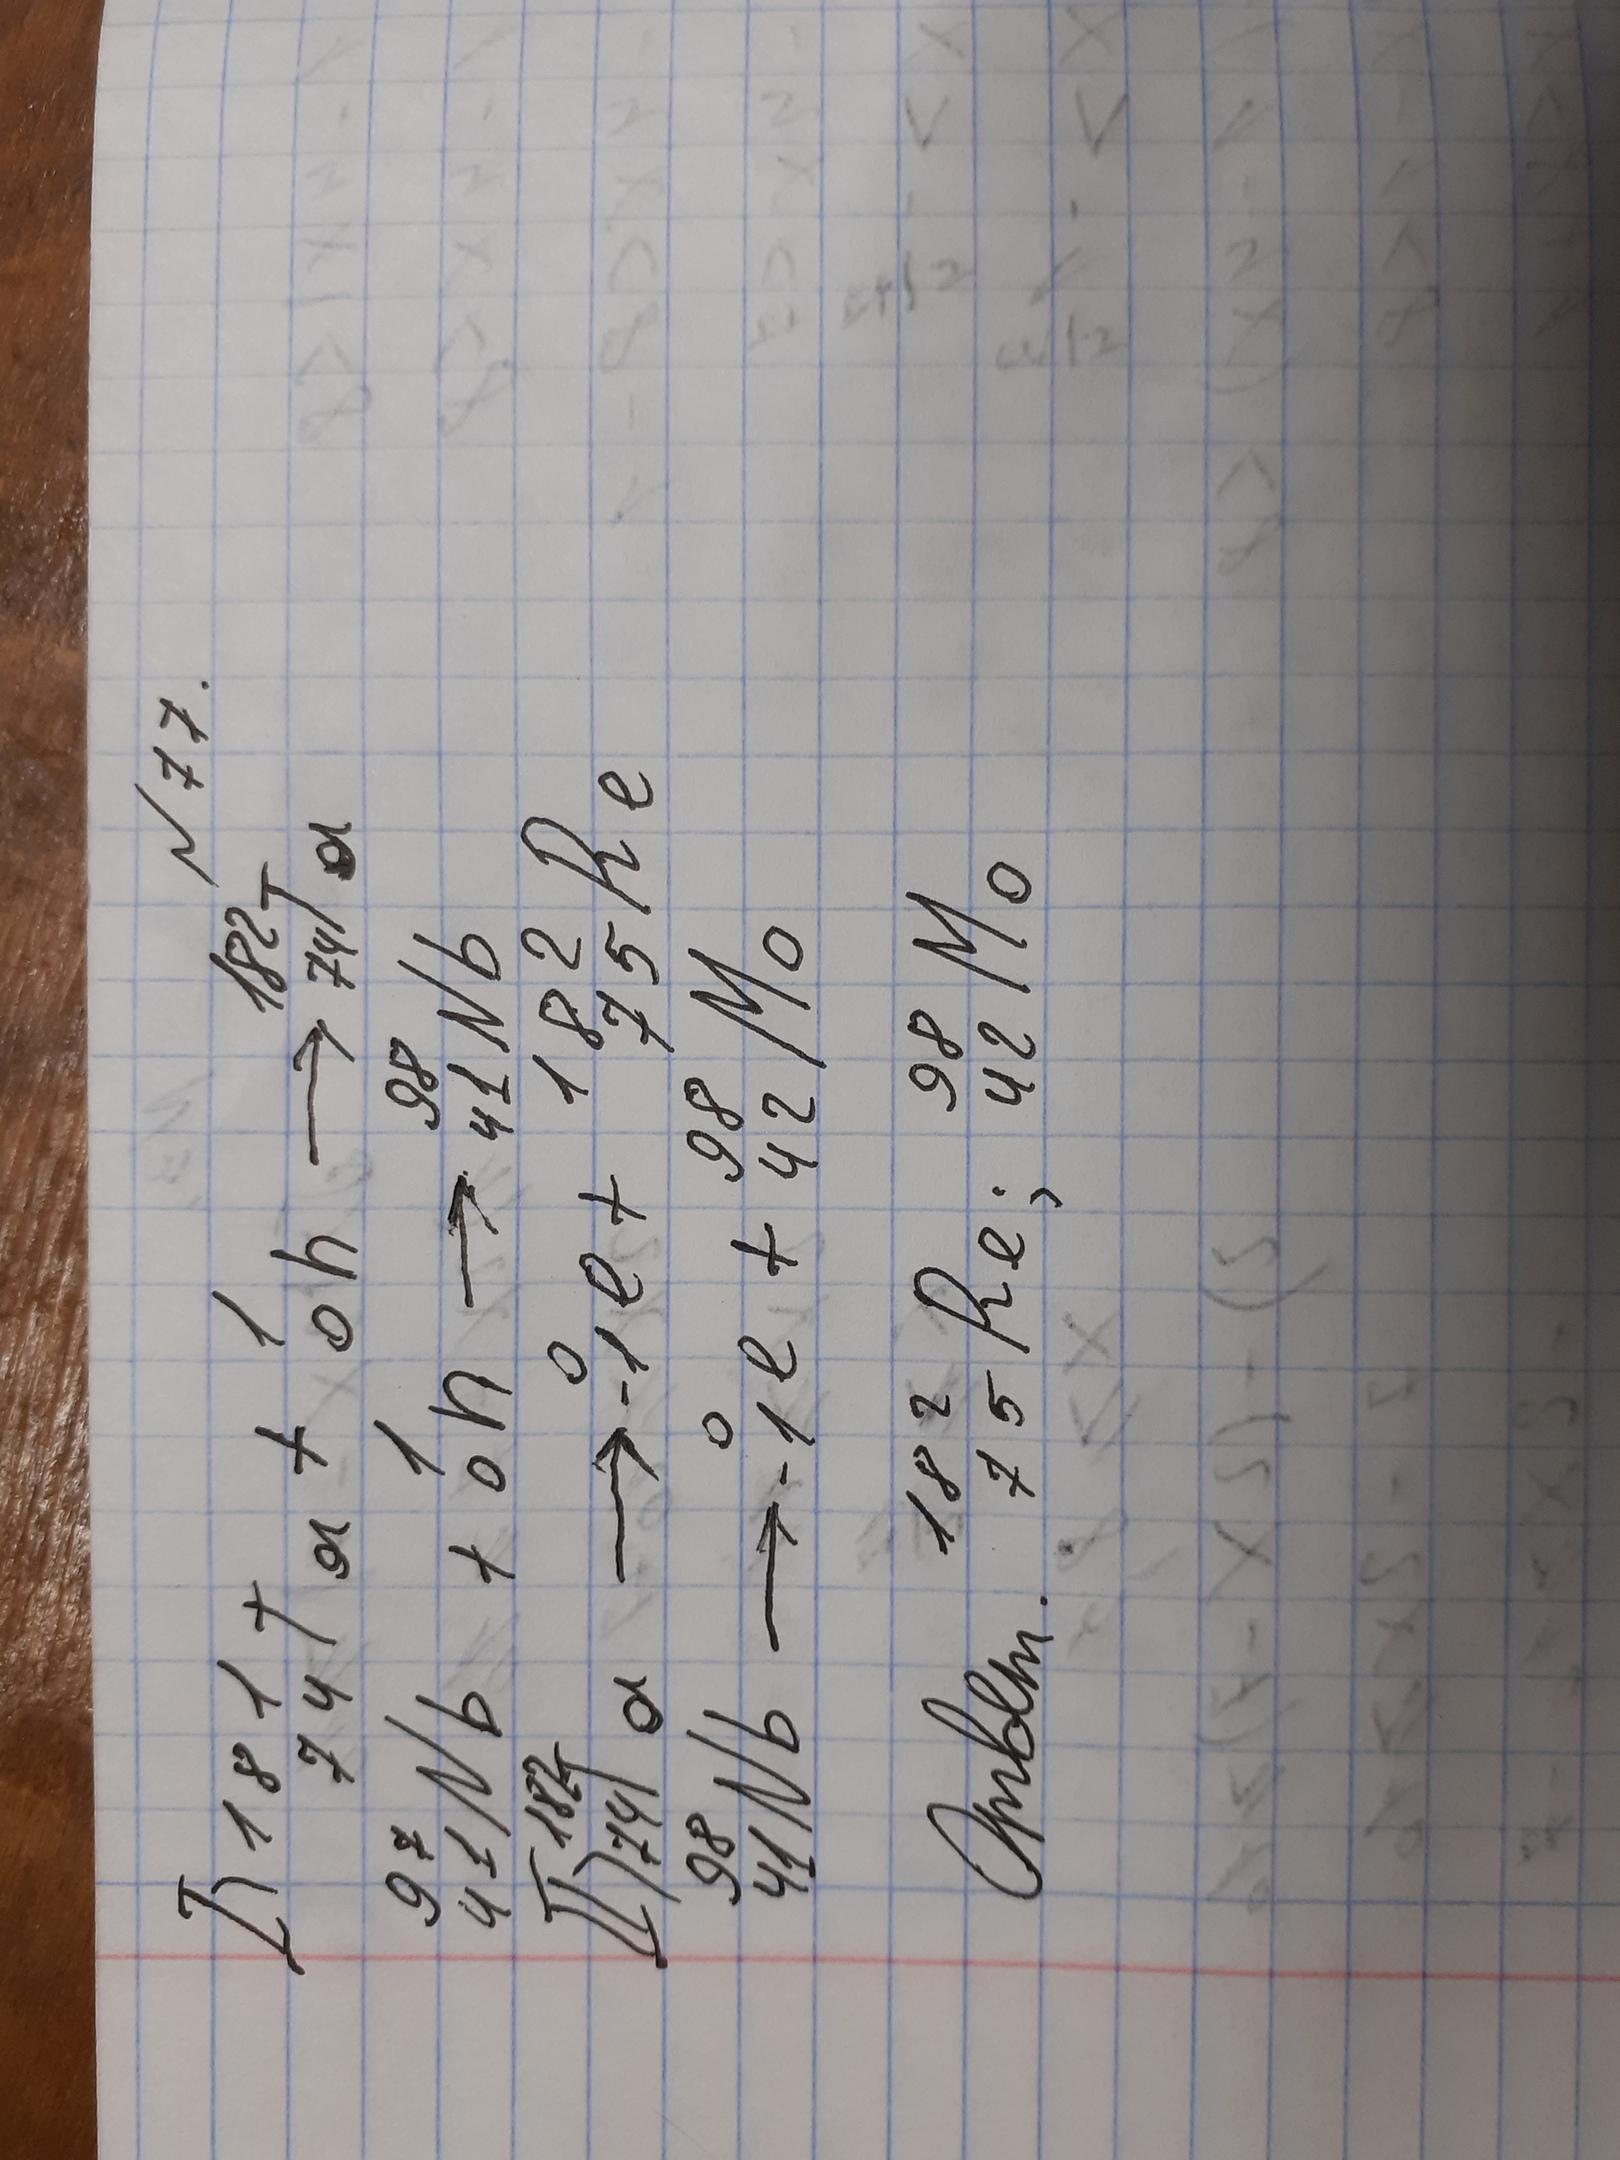 N 77.
I) ¹⁸¹₇₄Ta + ¹₀n → ¹⁸²₇₄Ta
⁹⁷₄₁Nb + ¹₀n → ⁹⁸₄₁Nb
II) ¹⁸²₇₄Ta → ⁰₋₁e + ¹⁸²₇₅Re
⁹⁸₄₁Nb → ⁰₋₁e + ⁹⁸₄₂Mo
Ответ. ¹⁸²₇₅Re; ⁹⁸₄₂Mo